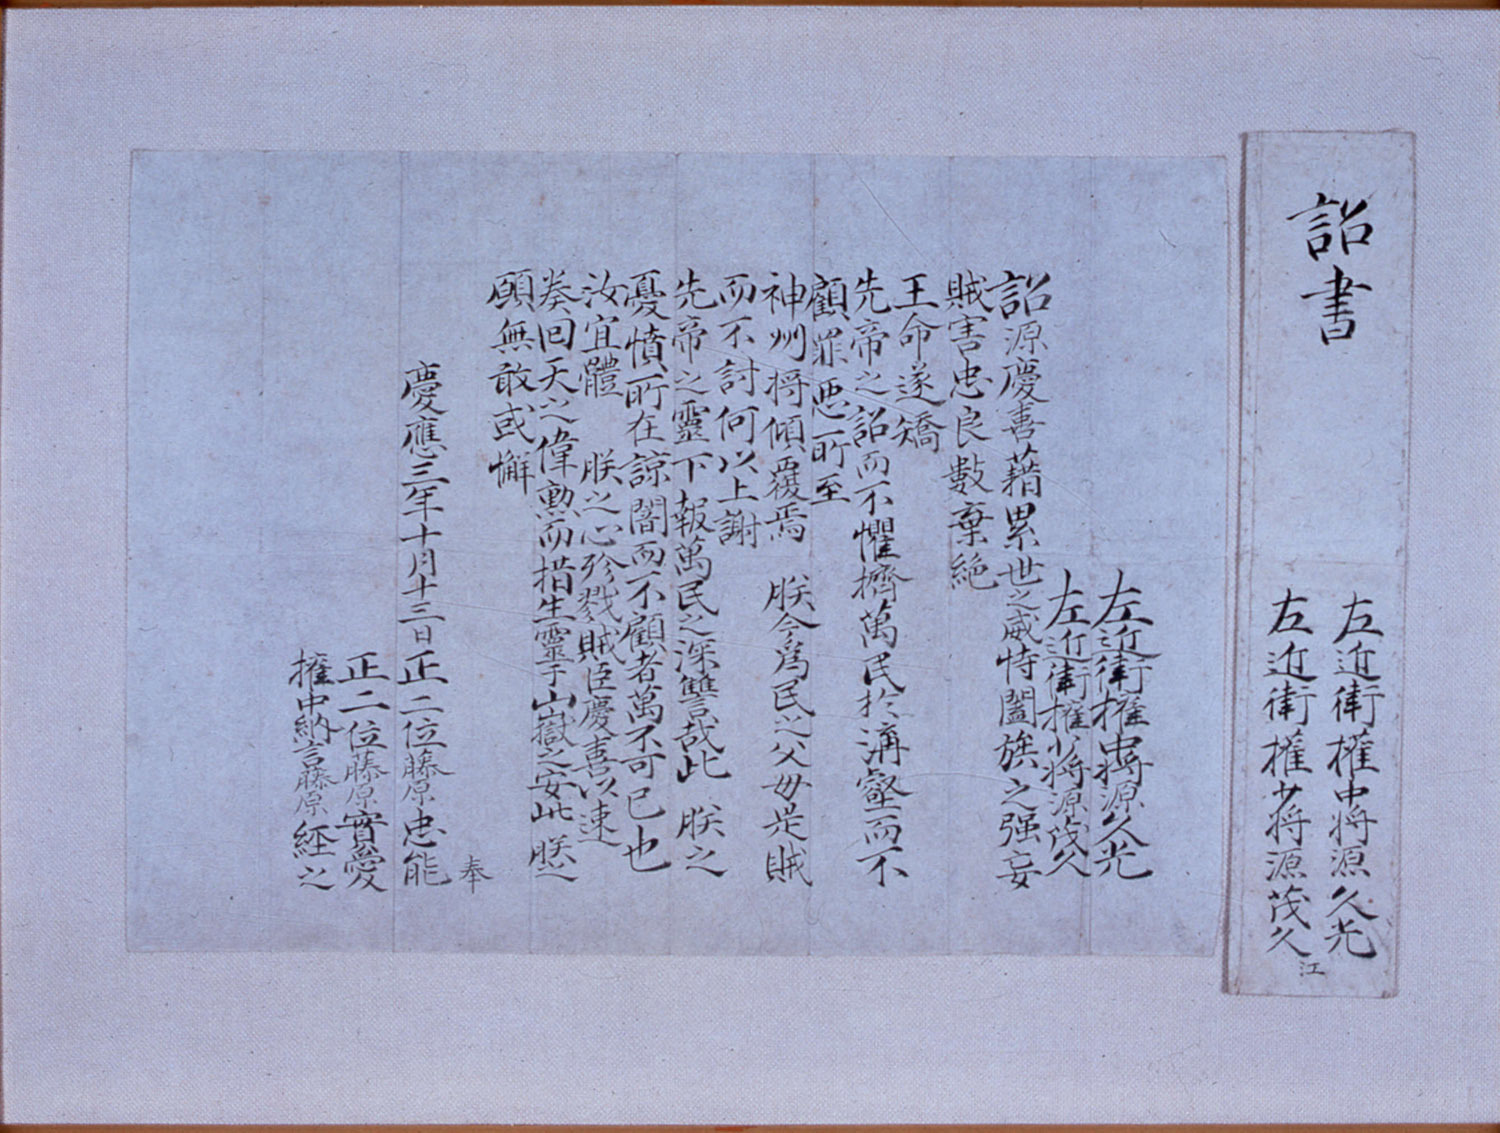 詔書
左近衛権中将源久光
左近衛権少将源茂久
江
左近衛権中将源久光
左近衛権少将源茂久
詔源慶喜藉累世之威恃闔族之强妄
賊害忠良數棄絶
王命遂矯
先帝之詔而不懼擠萬民於溝壑而不
顧罪悪所至
神州将傾覆焉 朕今爲民之父母是賊
而不討何以上謝
先帝之靈下報萬民之深讐哉此 朕之
憂憤所在諒闇而不顧者萬不可已也
汝宜體 朕之心殄戮賊臣慶喜以速
奏回天之偉勲而措生靈于山嶽之安此朕之
願無敢或懈
慶應三年十月十三日正二位藤原忠能
正二位藤原實愛
権中納言藤原経之
奉